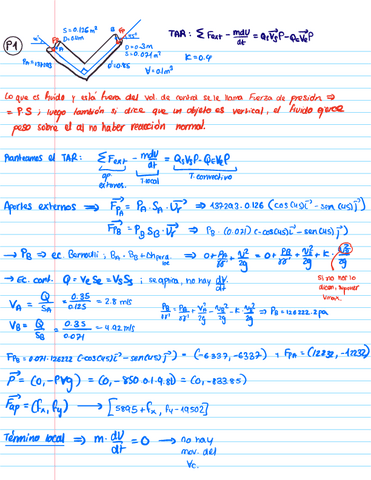 P1
S=0.126m²
D=0.4m
B
45°
A
D=0.3m
S=0.071m²
ρ=0'85
V=0.1m³
TAR: ΣFext - mdV/dt = QsVsρ - QeVeρ
K=0.4
Lo que es fluido y está fuera del vol. de control se le llama Fuerza de presión ⇒
= P·S ; luego también si dice que un objeto es vertical, el fluido ejerce
peso sobre el al no haber reacción normal.
Planteamos el TAR: ΣFext - mdV/dt = QsVsρ - QeVeρ
ap. externos.
T. local
T. convectivo
Aportes externos ⟹ FPA = PA·SA·Ur ⇒ 137293·0.126 (cos(45)i - sen(45)j)
FPB = PB SB·Ur ⇒ PB·(0.071)(-cos(45)i - sen(45)j)
→ PB ⇒ ec. Bernoulli ; BA = BB + ΔHper loc ⇒ 0 + PA/γ + VA²/2g = 0 + PB/γ + VB²/2g + K·VB²/2g
→ Ec. cont. Q = VeSe = VsSs ; se aplica, no hay dV/dt
Si no nos lo dicen, suponer Vmax.
VA = Q/SA = 0.35/0.125 = 2.8 m/s
VB = Q/SB = 0.35/0.071 = 4.92 m/s
PB/γ = PA/γ + VA²/2g - VB²/2g - K·VB²/2g ⇒ PB = 126222.2 pa
FPB = 0.071·126222 (-cos(45)i - sen(45)j) = (-6337, -6337) = FPA = (12232, -12232)
P = (0, -ρVg) = (0, -850·0.1·9.81) = (0, -833.85)
Fap = (fx, fy) ⟶ [5895 + fx, fy - 19502]
Término local ⇒ m·dV/dt = 0 → no hay
mov. del
VC.